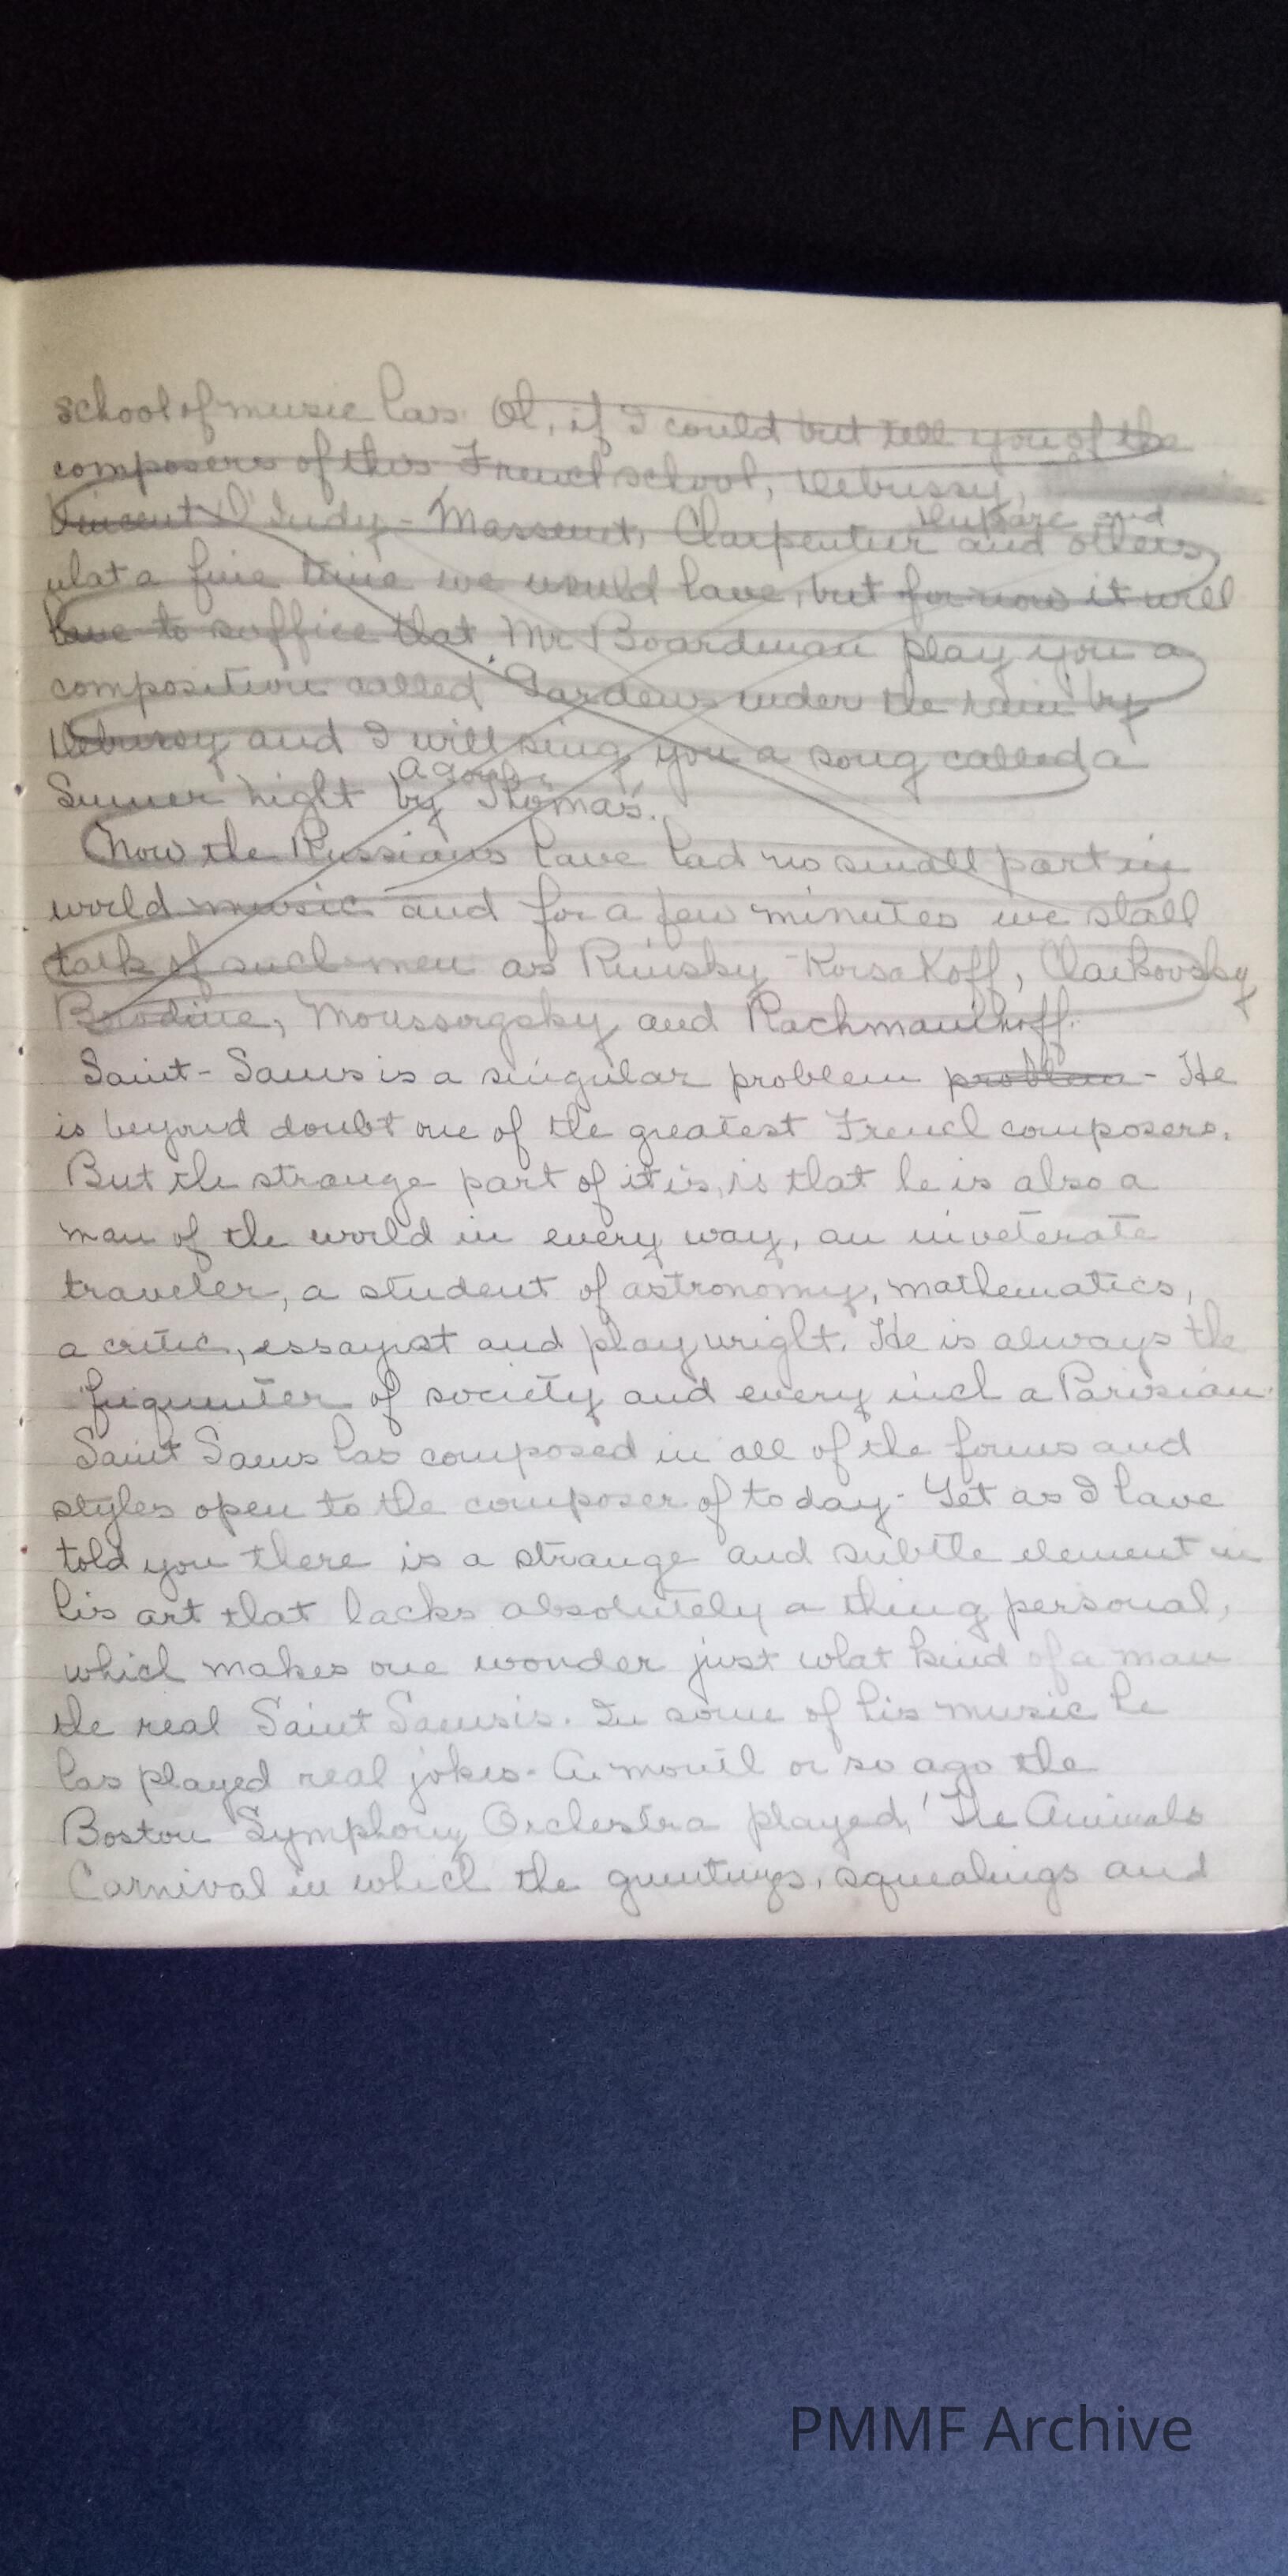 school of music has. Oh, if I could but tell you of the
composers of this French school, Debussy,
Vincent D'Indy - Massenet, Charpentier and others
Duparc and
what a fine time we would have, but for now it will
have to soffice that Mr Boardman play you a
composition called Gardens under the rain by
Debussy and I will sing you a song called a
Summer night by Thomas.
Now the Russians have had no small part in
world music and for a few minutes we shall
talk of such men as Rimsky-Korsakoff, Chaikovsky
Borodine, Moussorgsky and Rachmaninoff.
Saint-Saens is a singular problem problem - He
is beyond doubt one of the greatest French composers.
But the strange part of it is, is that he is also a
man of the world in every way, an inveterate
traveler, a student of astronomy, mathematics,
a critic, essayist and playwright. He is always the
of society and every inch a Parisian.
Saint Saens has composed in all of the forms and
styles open to the composer of today - Yet as I have
told you there is a strange and subtle element in
his art that lacks absolutely a thing personal,
which makes one wonder just what kind of a man
the real Saint Saens is. In some of his music he
has played real jokes - A month or so ago the
Boston Symphony Orchestra played, 'The Animals
Carnival in which the gruntings, squealings and
PMMF Archive